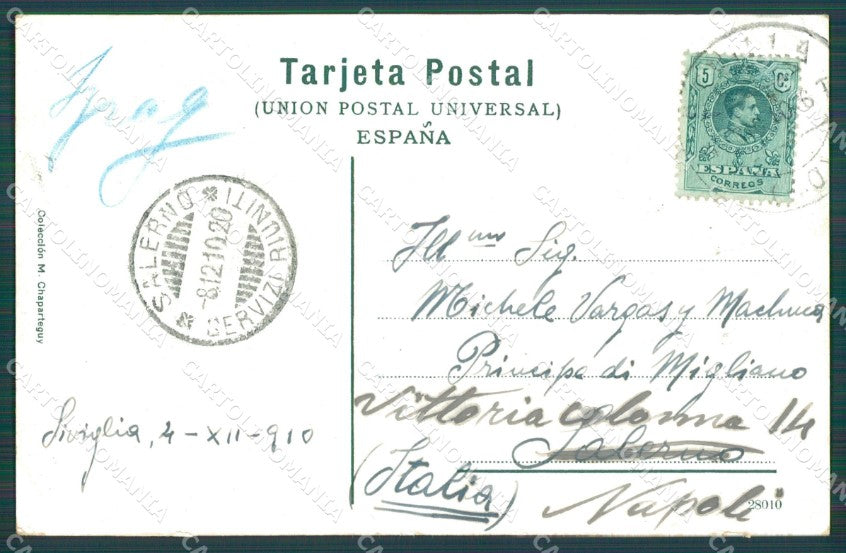 Tarjeta Postal
(UNION POSTAL UNIVERSAL)
ESPAÑA
5 Cs
ESPAÑA
CORREOS
SALERNO
-8.12.10.20
SERVIZI RIUNITI
Colección M. Chaparteguy
Siviglia, 4-XII-910
Ill mo Sig.
Michele Vargas y Machuca
Principe di Migliano
Vittoria colonna 14
Salerno
(Italia)
Napoli
28010
CARTOLINOMANIA